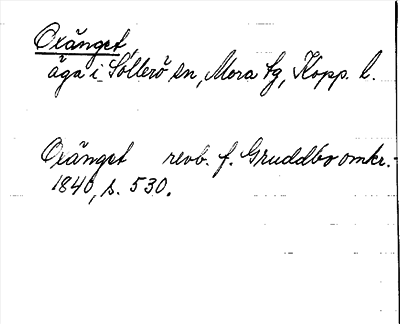 Oxänget,
äga i Sollerö sn, Mora tg, Kopp. l.
Oxänget revb. f. Gruddbo omkr.
1840, s. 530.